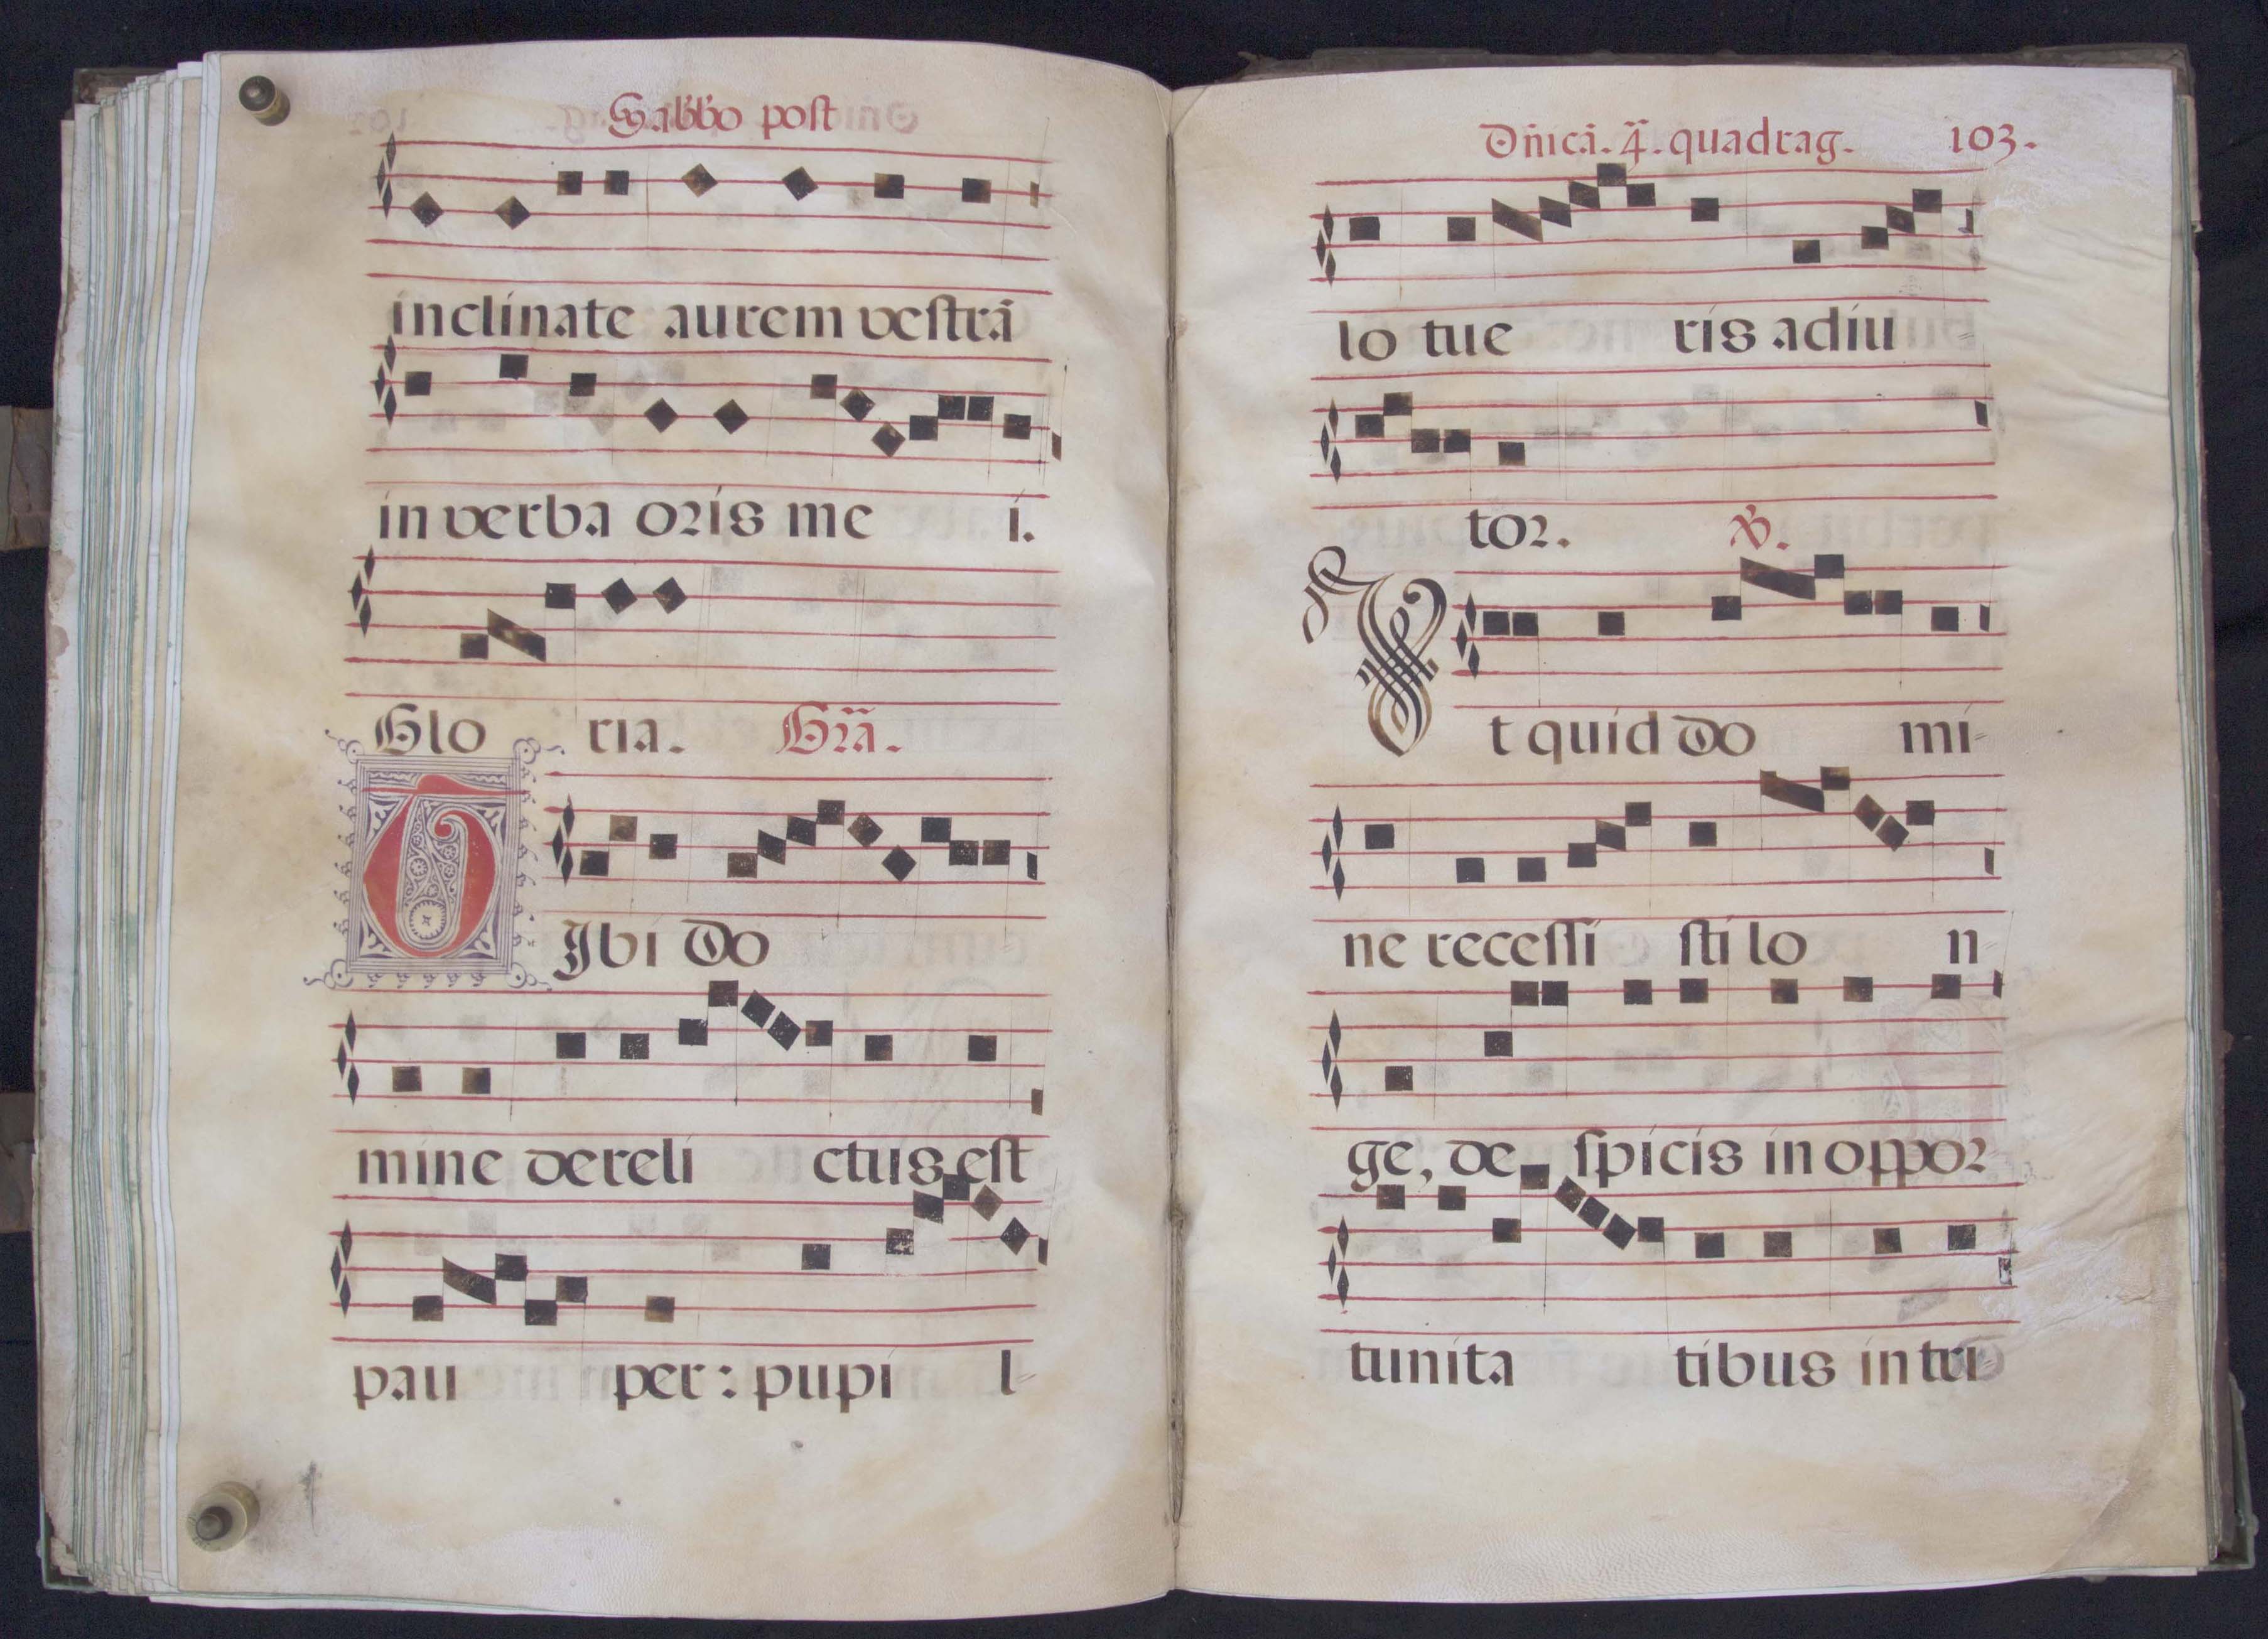 Sabb'o post
inclinate aurem vestrã
in verba oris me i.
Glo ria. Grã.
TIbi Do
mine dereli ctus est
pau per: pupi l-
Dñicã. 4ã. quadrag. 103.
lo tue ris adiu
tor. ℣.
Vt quid Do mi-
ne recessi sti lo n-
ge, de spicis in oppor
tunita tibus in tri-